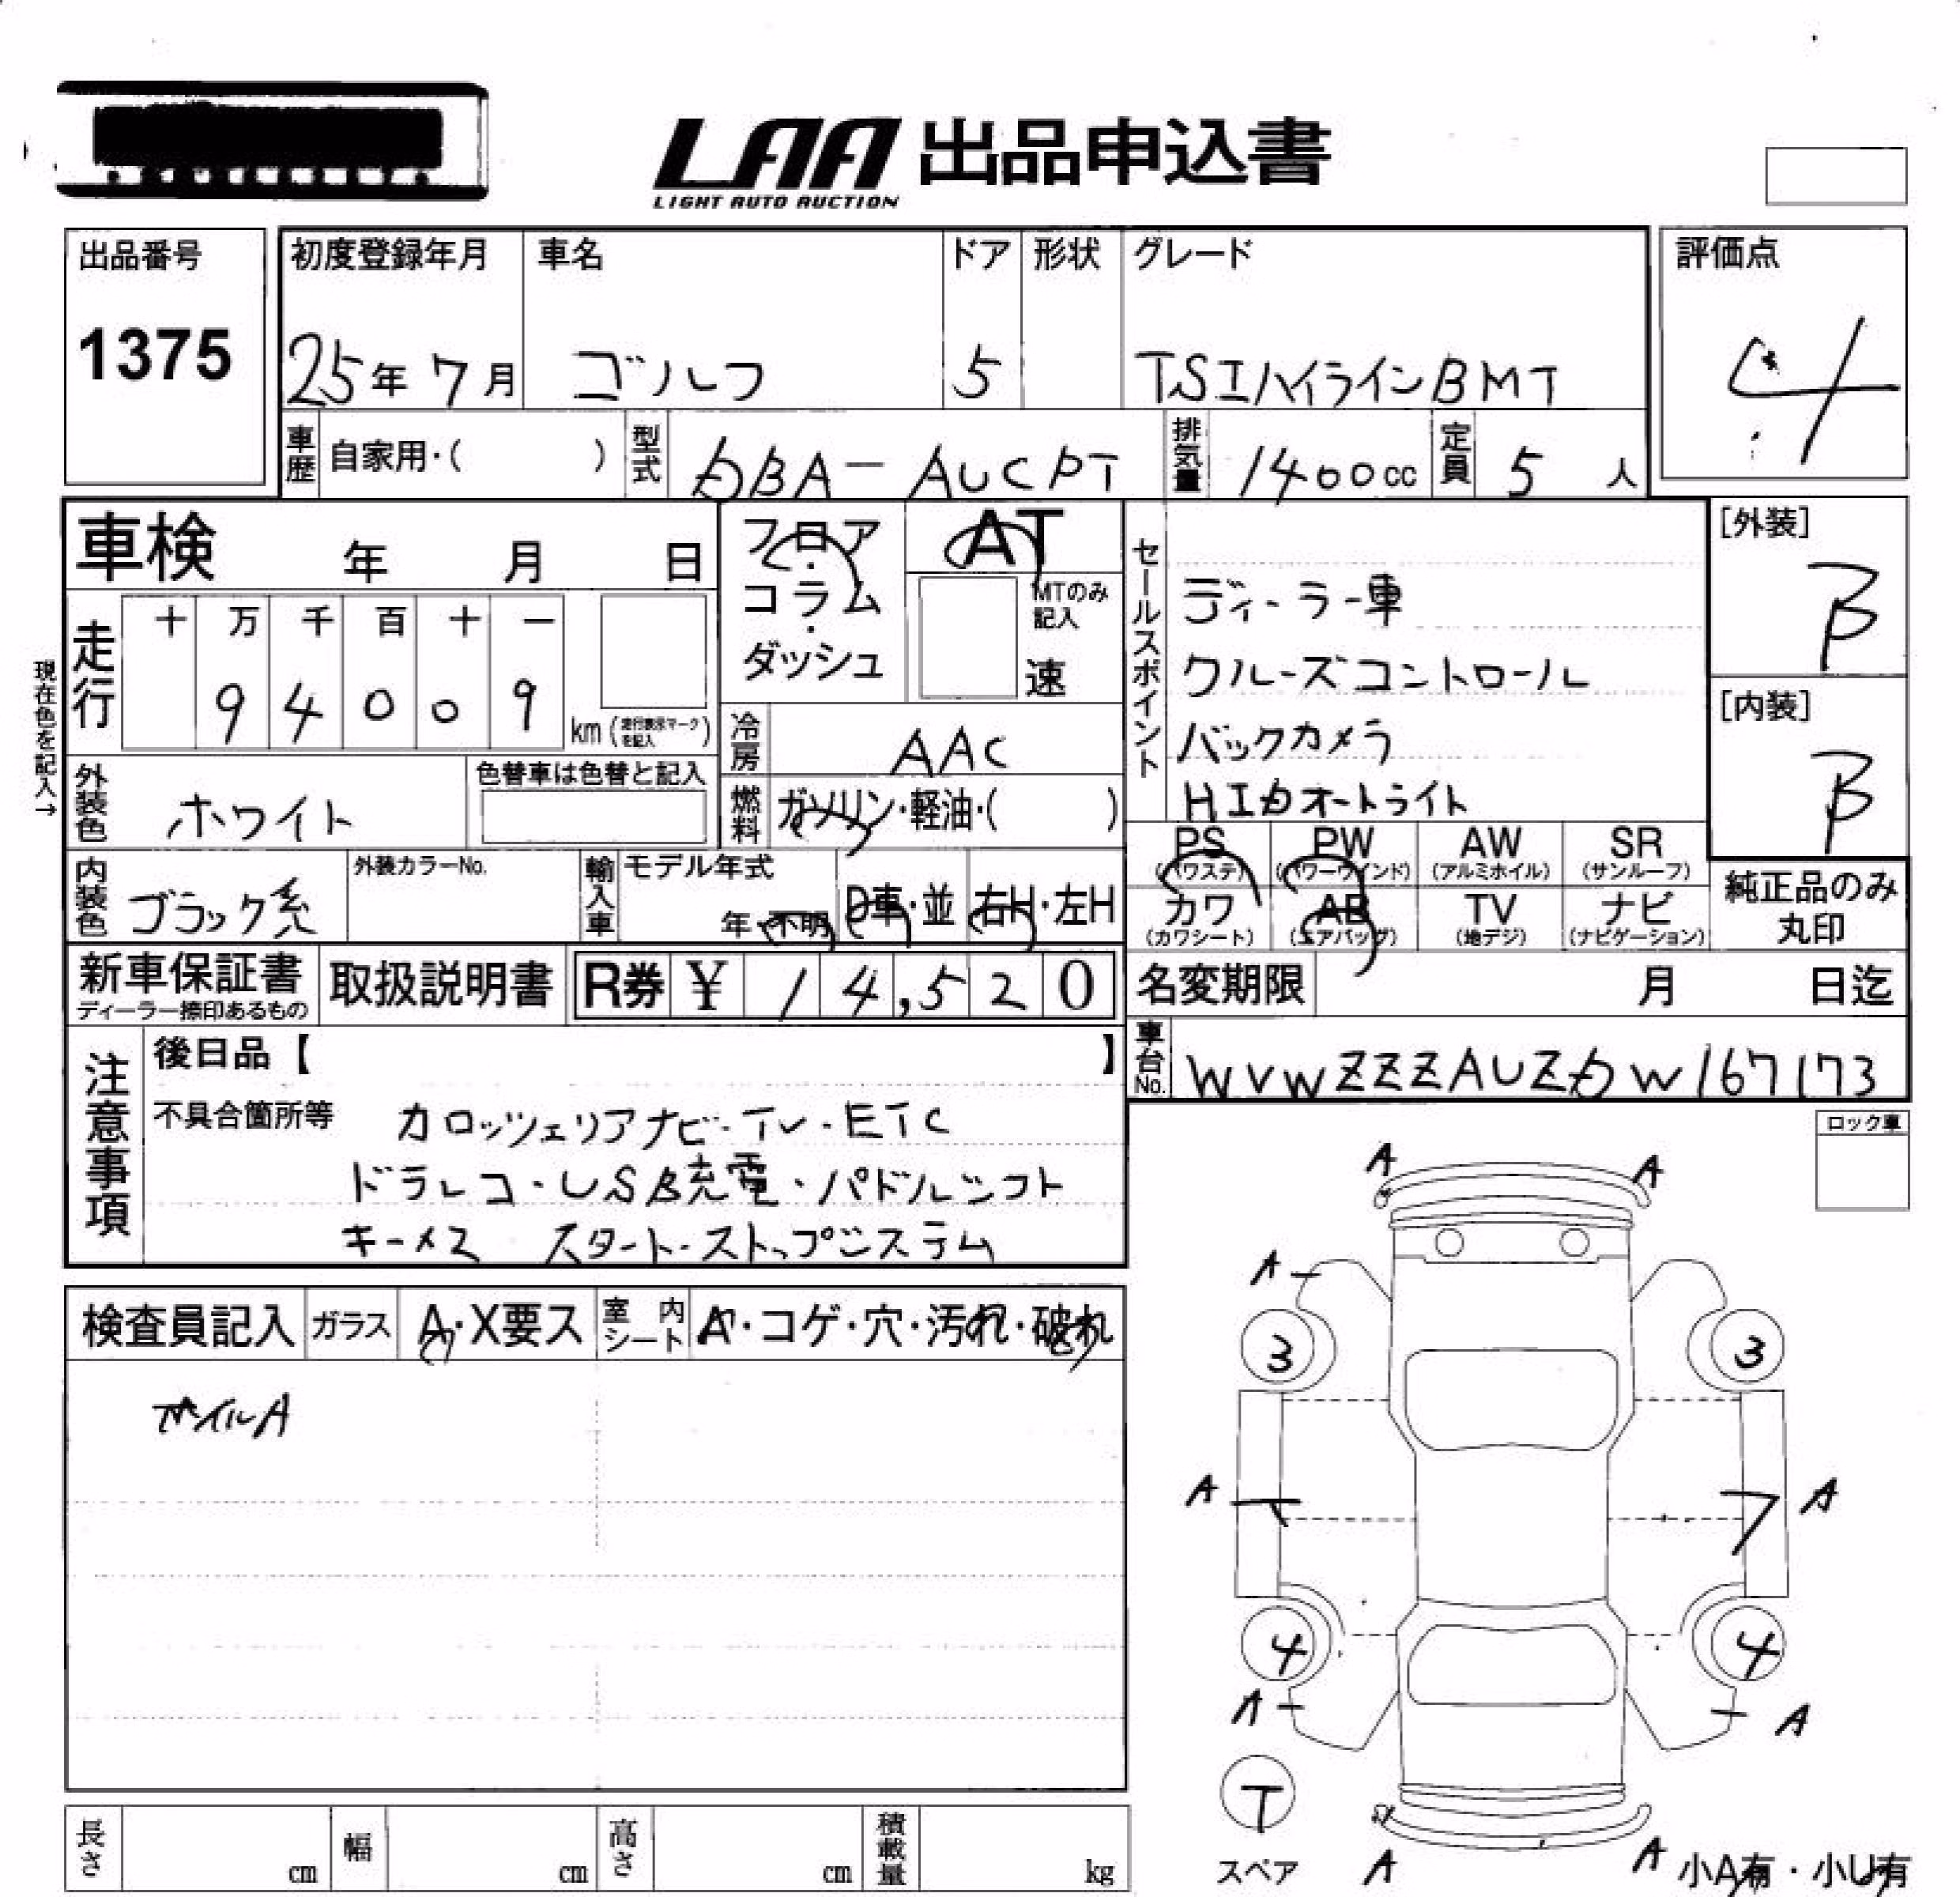 LAA 出品申込書
LIGHT AUTO AUCTION
出品番号
1375
初度登録年月
25年 7月
車名
ゴルフ
ドア
5
形状
グレード
TSIハイラインBMT
評価点
4
車歴 自家用・( )
型式 DBA-AUCPT
排気量 1400cc
定員 5人
車検 年 月 日
フロア・コラム・ダッシュ
AT
MTのみ記入
速
セールスポイント
ディーラー車
クルーズコントロール
バックカメラ
HID オートライト
[外装]
B
[内装]
B
現在色を記入→
走行
十 万 千 百 十 一
9 4 0 0 9
km (走行表示マークを記入)
冷房 AAC
外装色 ホワイト
色替車は色替と記入
燃料 ガソリン・軽油・( )
PS (パワステ)
PW (パワーウインド)
AW (アルミホイル)
SR (サンルーフ)
カワ (カワシート)
AB (エアバッグ)
TV (地デジ)
ナビ (ナビゲーション)
純正品のみ丸印
内装色 ブラック系
外装カラーNo.
輸入車 モデル年式
年・不明
D車・並
右H・左H
新車保証書
ディーラー捺印あるもの
取扱説明書
R券 ¥ 14,520
名変期限 月 日迄
車台No. WVWZZZAUZDW167173
注意事項
後日品【 】
不具合箇所等
カロッツェリアナビ・TV・ETC
ドラレコ・USB充電・パドルシフト
キーメ2 スタート・ストップシステム
ロック車
検査員記入
ガラス A・X要ス
室内シート A・コゲ・穴・汚れ・破れ
ホイルA
A A
A
3 3
A A
4 4
A A
T
スペア
A A
小A有・小U有
長さ cm
幅 cm
高さ cm
積載量 kg